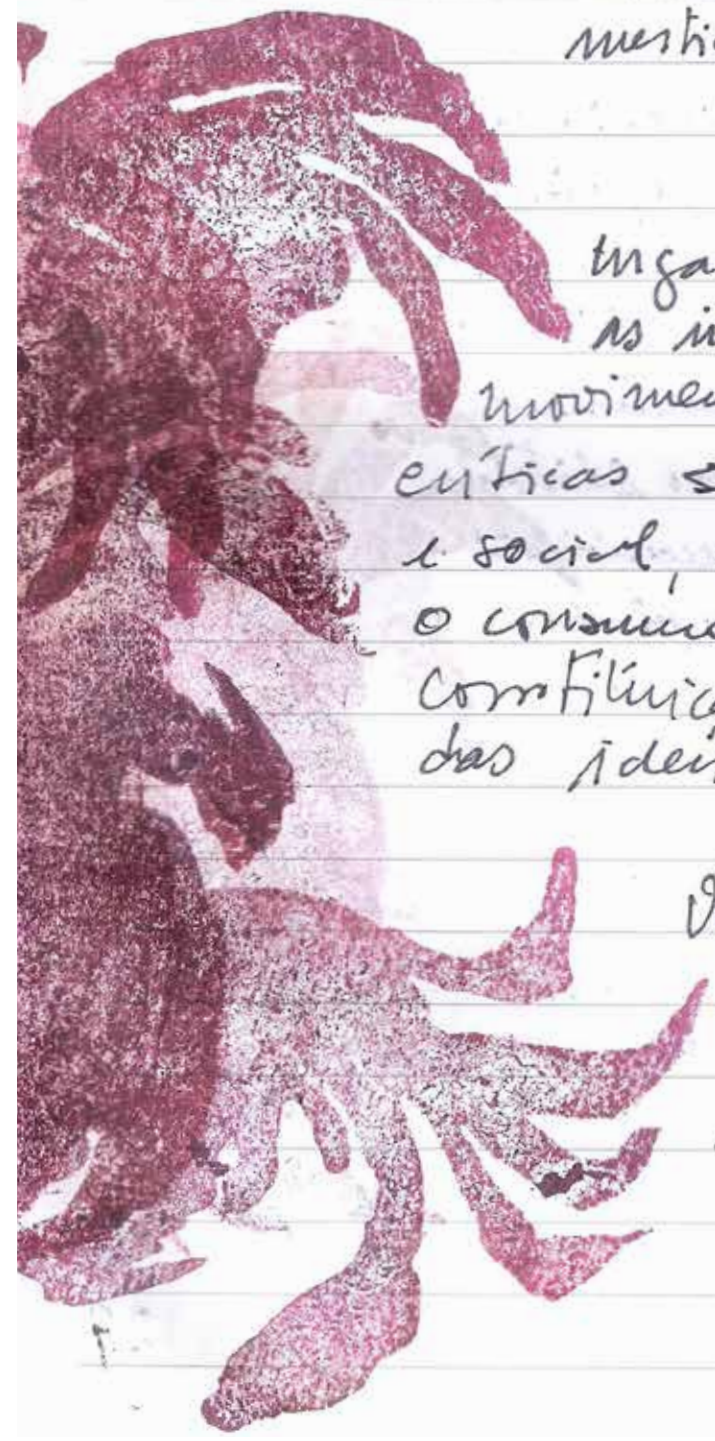 mesti
enga
as in
movimen
críticas s
e social,
o consumo
constituiç
das iden